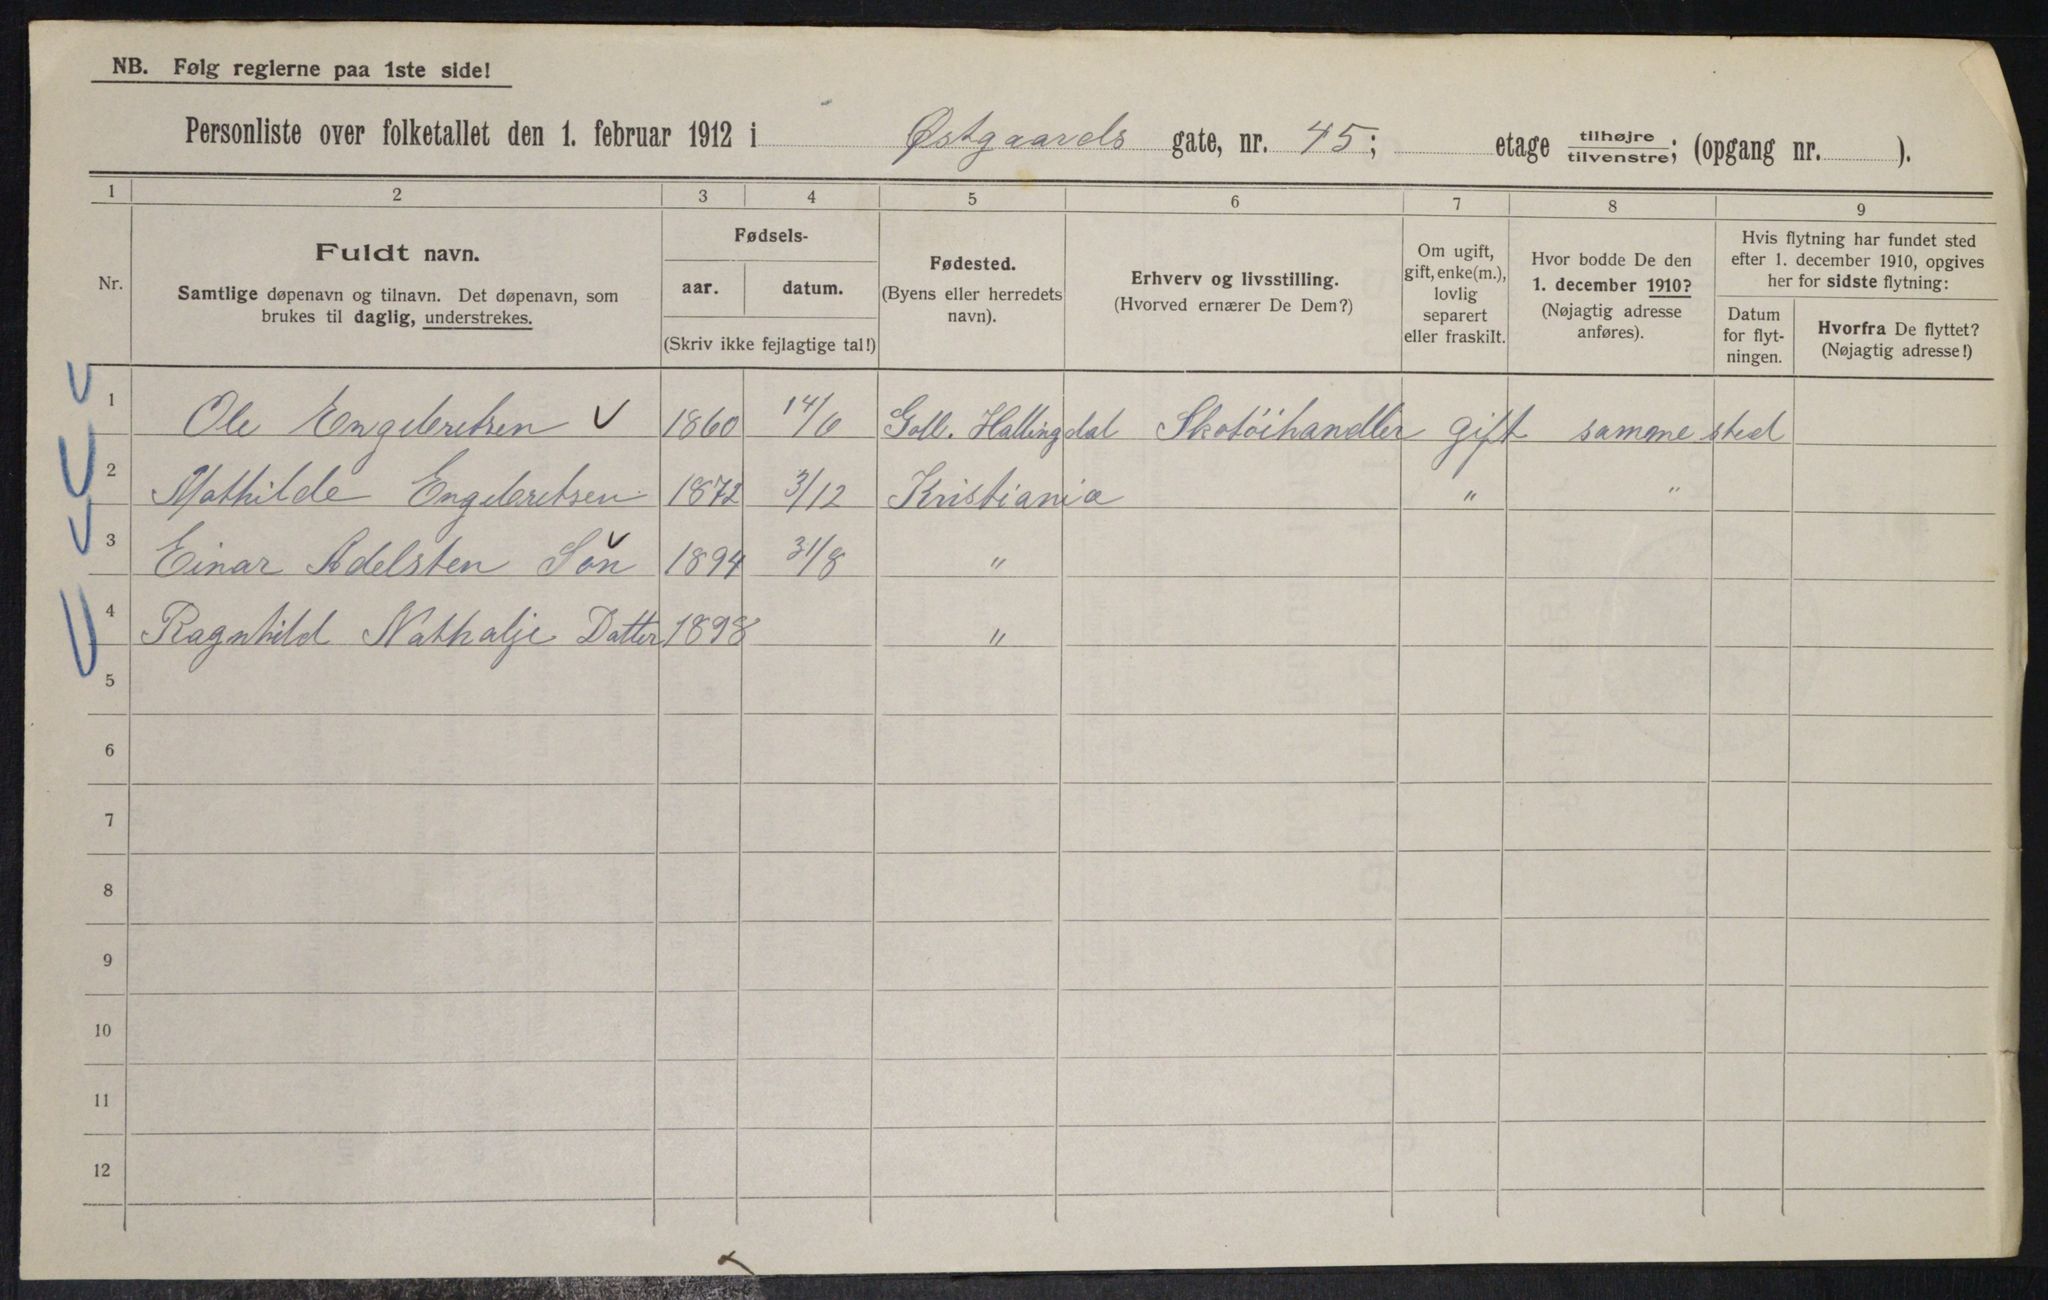 NB. Følg reglerne paa 1ste side!
Personliste over folketallet den 1. februar 1912 i Østgaards gate, nr. 45; etage tilhøjre/tilvenstre; (opgang nr. ).
1 2 3 4 5 6 7 8 9
Nr.
Fuldt navn.
Samtlige døpenavn og tilnavn. Det døpenavn, som
brukes til daglig, understrekes.
Fødsels-
aar. datum.
(Skriv ikke fejlagtige tal!)
Fødested.
(Byens eller herredets
navn).
Erhverv og livsstilling.
(Hvorved ernærer De Dem?)
Om ugift,
gift, enke(m.),
lovlig
separert
eller fraskilt.
Hvor bodde De den
1. december 1910?
(Nøjagtig adresse
anføres).
Hvis flytning har fundet sted
efter 1. december 1910, opgives
her for sidste flytning:
Datum
for flyt-
ningen.
Hvorfra De flyttet?
(Nøjagtig adresse!)
1 Ole Engebretsen 1860 14/6 Goll. Hallingdal Skotöihandler gift samme sted
2 Mathilde Engebretsen 1872 3/12 Kristiania " "
3 Einar Adelsten Sön 1894 31/8 "
4 Ragnhild Nathalje Datter 1898 "
5
6
7
8
9
10
11
12